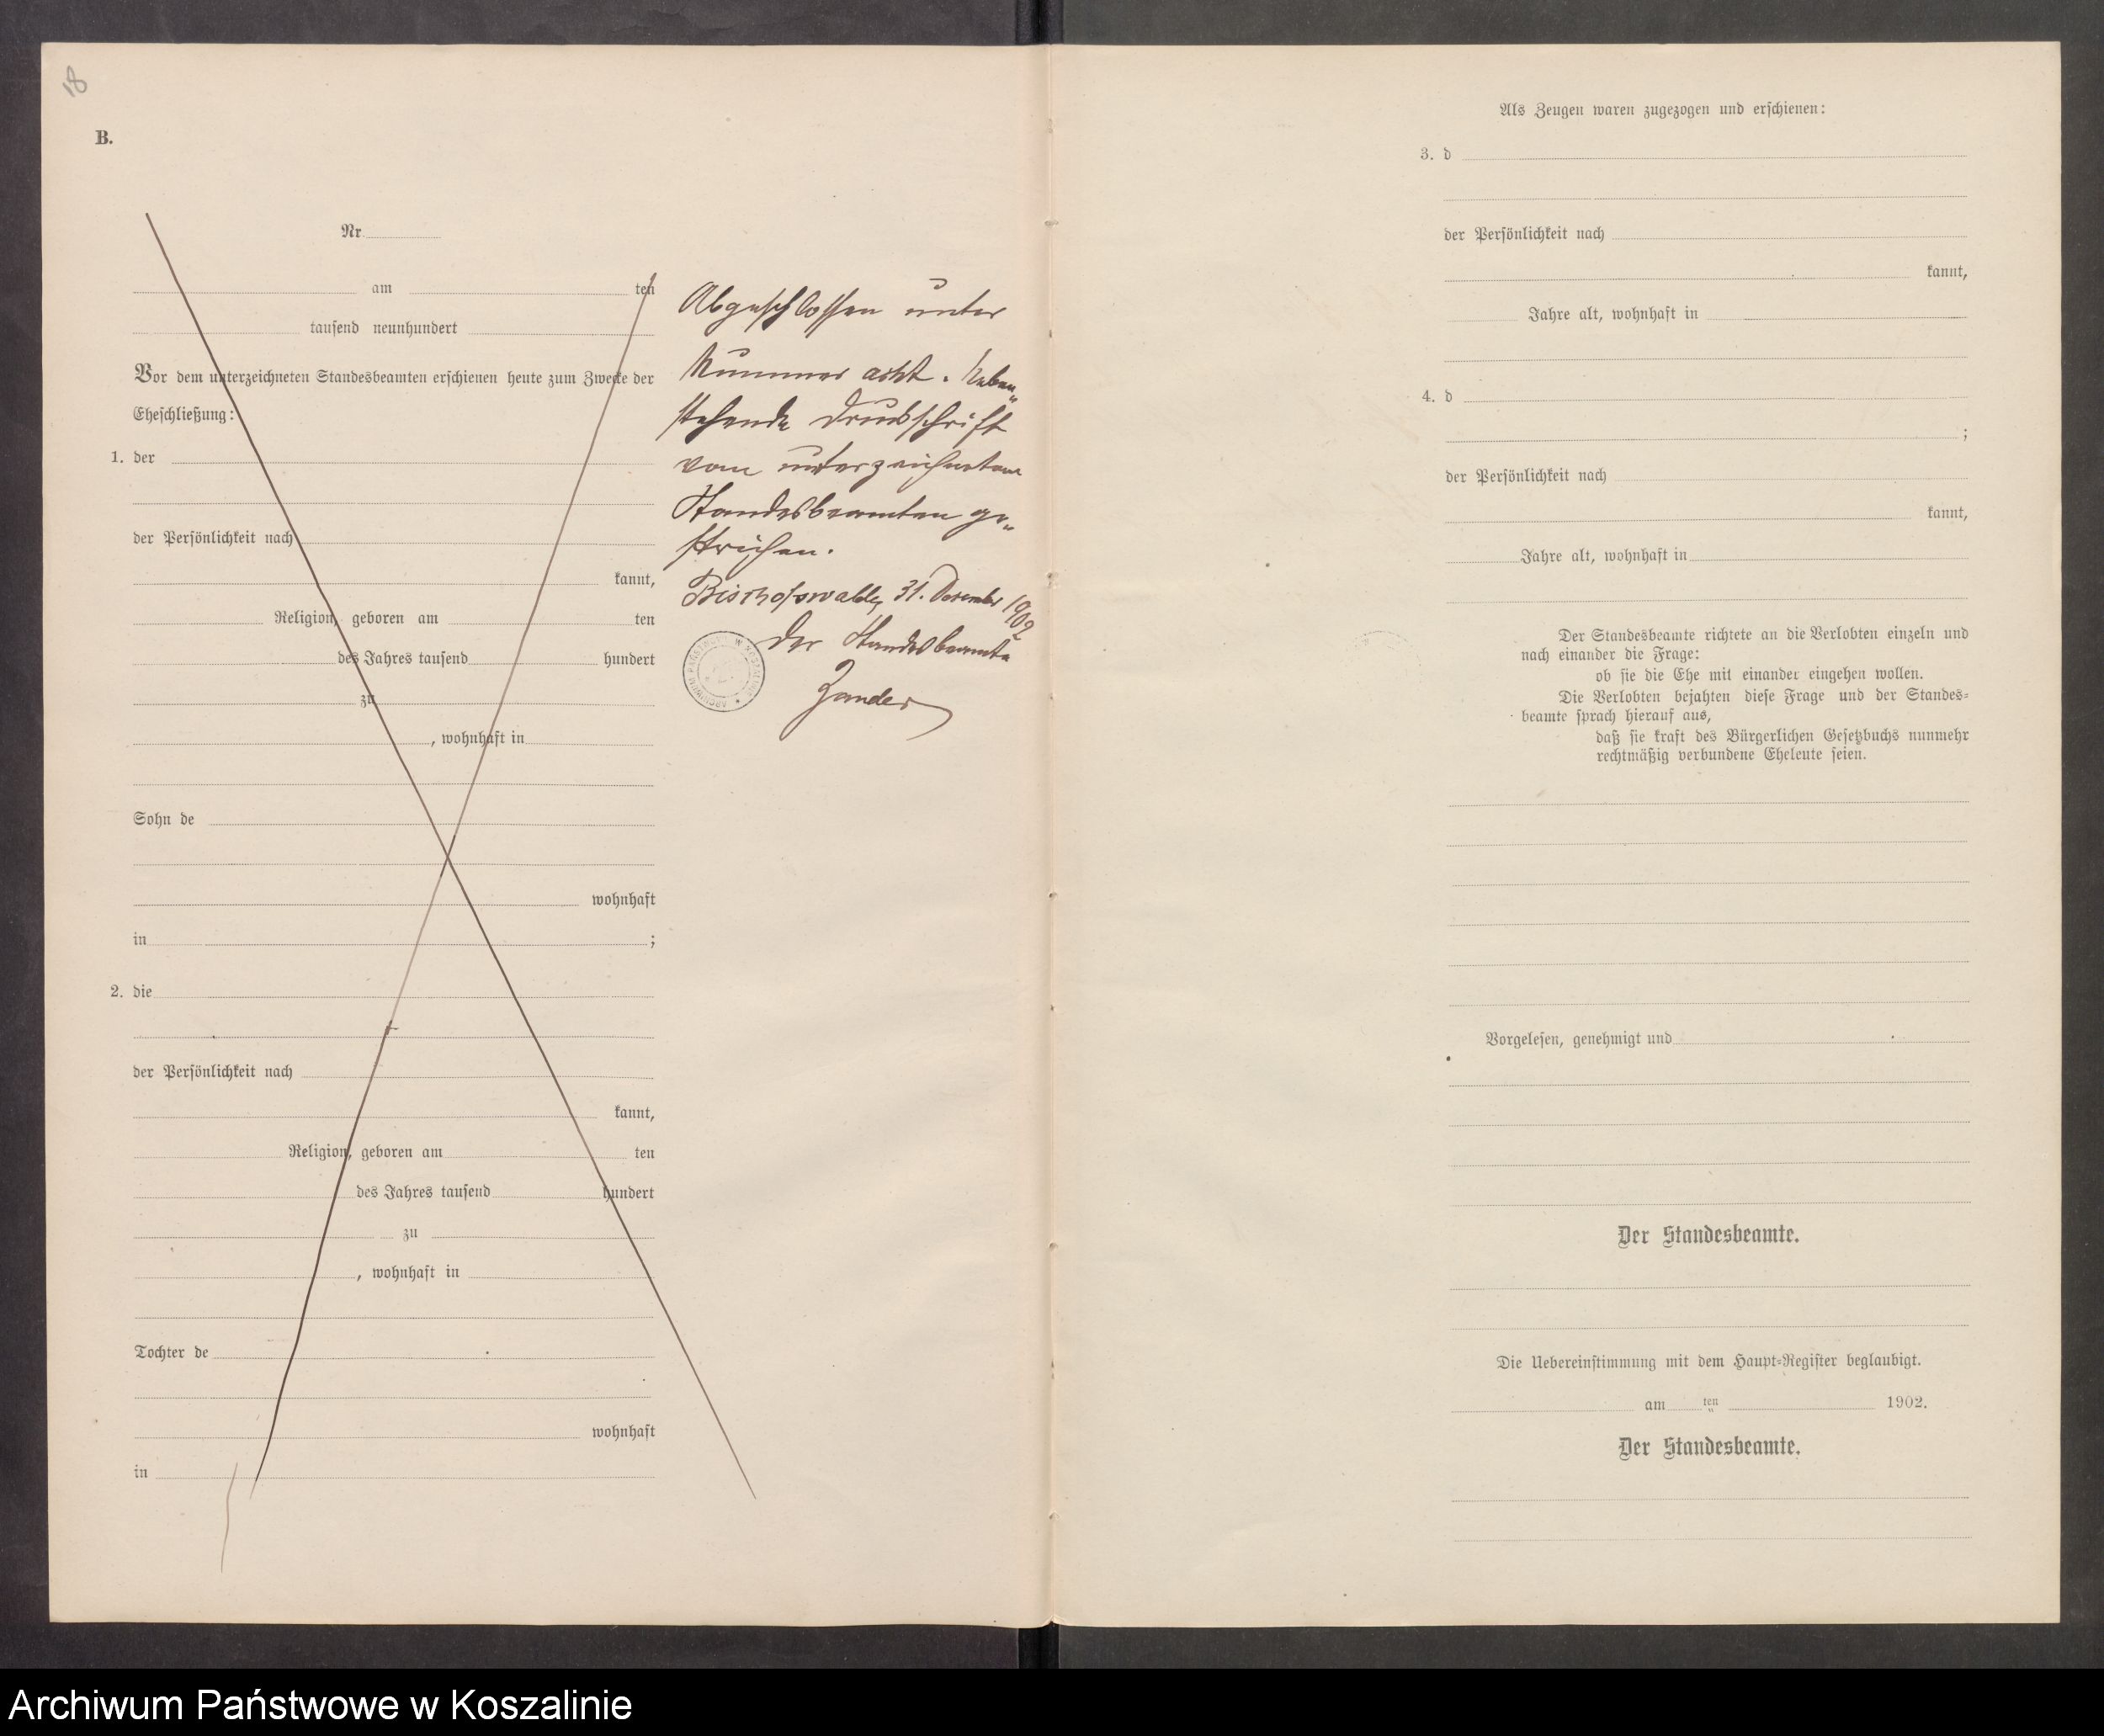 18
B.
Nr.
am ten
tausend neunhundert
Vor dem unterzeichneten Standesbeamten erschienen heute zum Zwecke der
Eheschließung:
1. der
der Persönlichkeit nach
kannt,
Religion, geboren am ten
des Jahres tausend hundert
zu
, wohnhaft in
Sohn de
wohnhaft
in ;
2. die
der Persönlichkeit nach
kannt,
Religion, geboren am ten
des Jahres tausend hundert
zu
, wohnhaft in
Tochter de
wohnhaft
in
Abgeschlossen unter
Nummer acht. Neben„
stehende Druckschrift
vom unterzeichneten
Standesbeamten ge„
strichen.
Bischofswalde, 31. Dezember 1902
Der Standesbeamte
Zander
Als Zeugen waren zugezogen und erschienen:
3. d
der Persönlichkeit nach
kannt,
Jahre alt, wohnhaft in
4. d
;
der Persönlichkeit nach
kannt,
Jahre alt, wohnhaft in
Der Standesbeamte richtete an die Verlobten einzeln und
nach einander die Frage:
ob sie die Ehe mit einander eingehen wollen.
Die Verlobten bejahten diese Frage und der Standes-
beamte sprach hierauf aus,
daß sie kraft des Bürgerlichen Gesetzbuchs nunmehr
rechtmäßig verbundene Eheleute seien.
Vorgelesen, genehmigt und
Der Standesbeamte.
Die Uebereinstimmung mit dem Haupt-Register beglaubigt.
am ten 1902.
Der Standesbeamte.
Archiwum Państwowe w Koszalinie